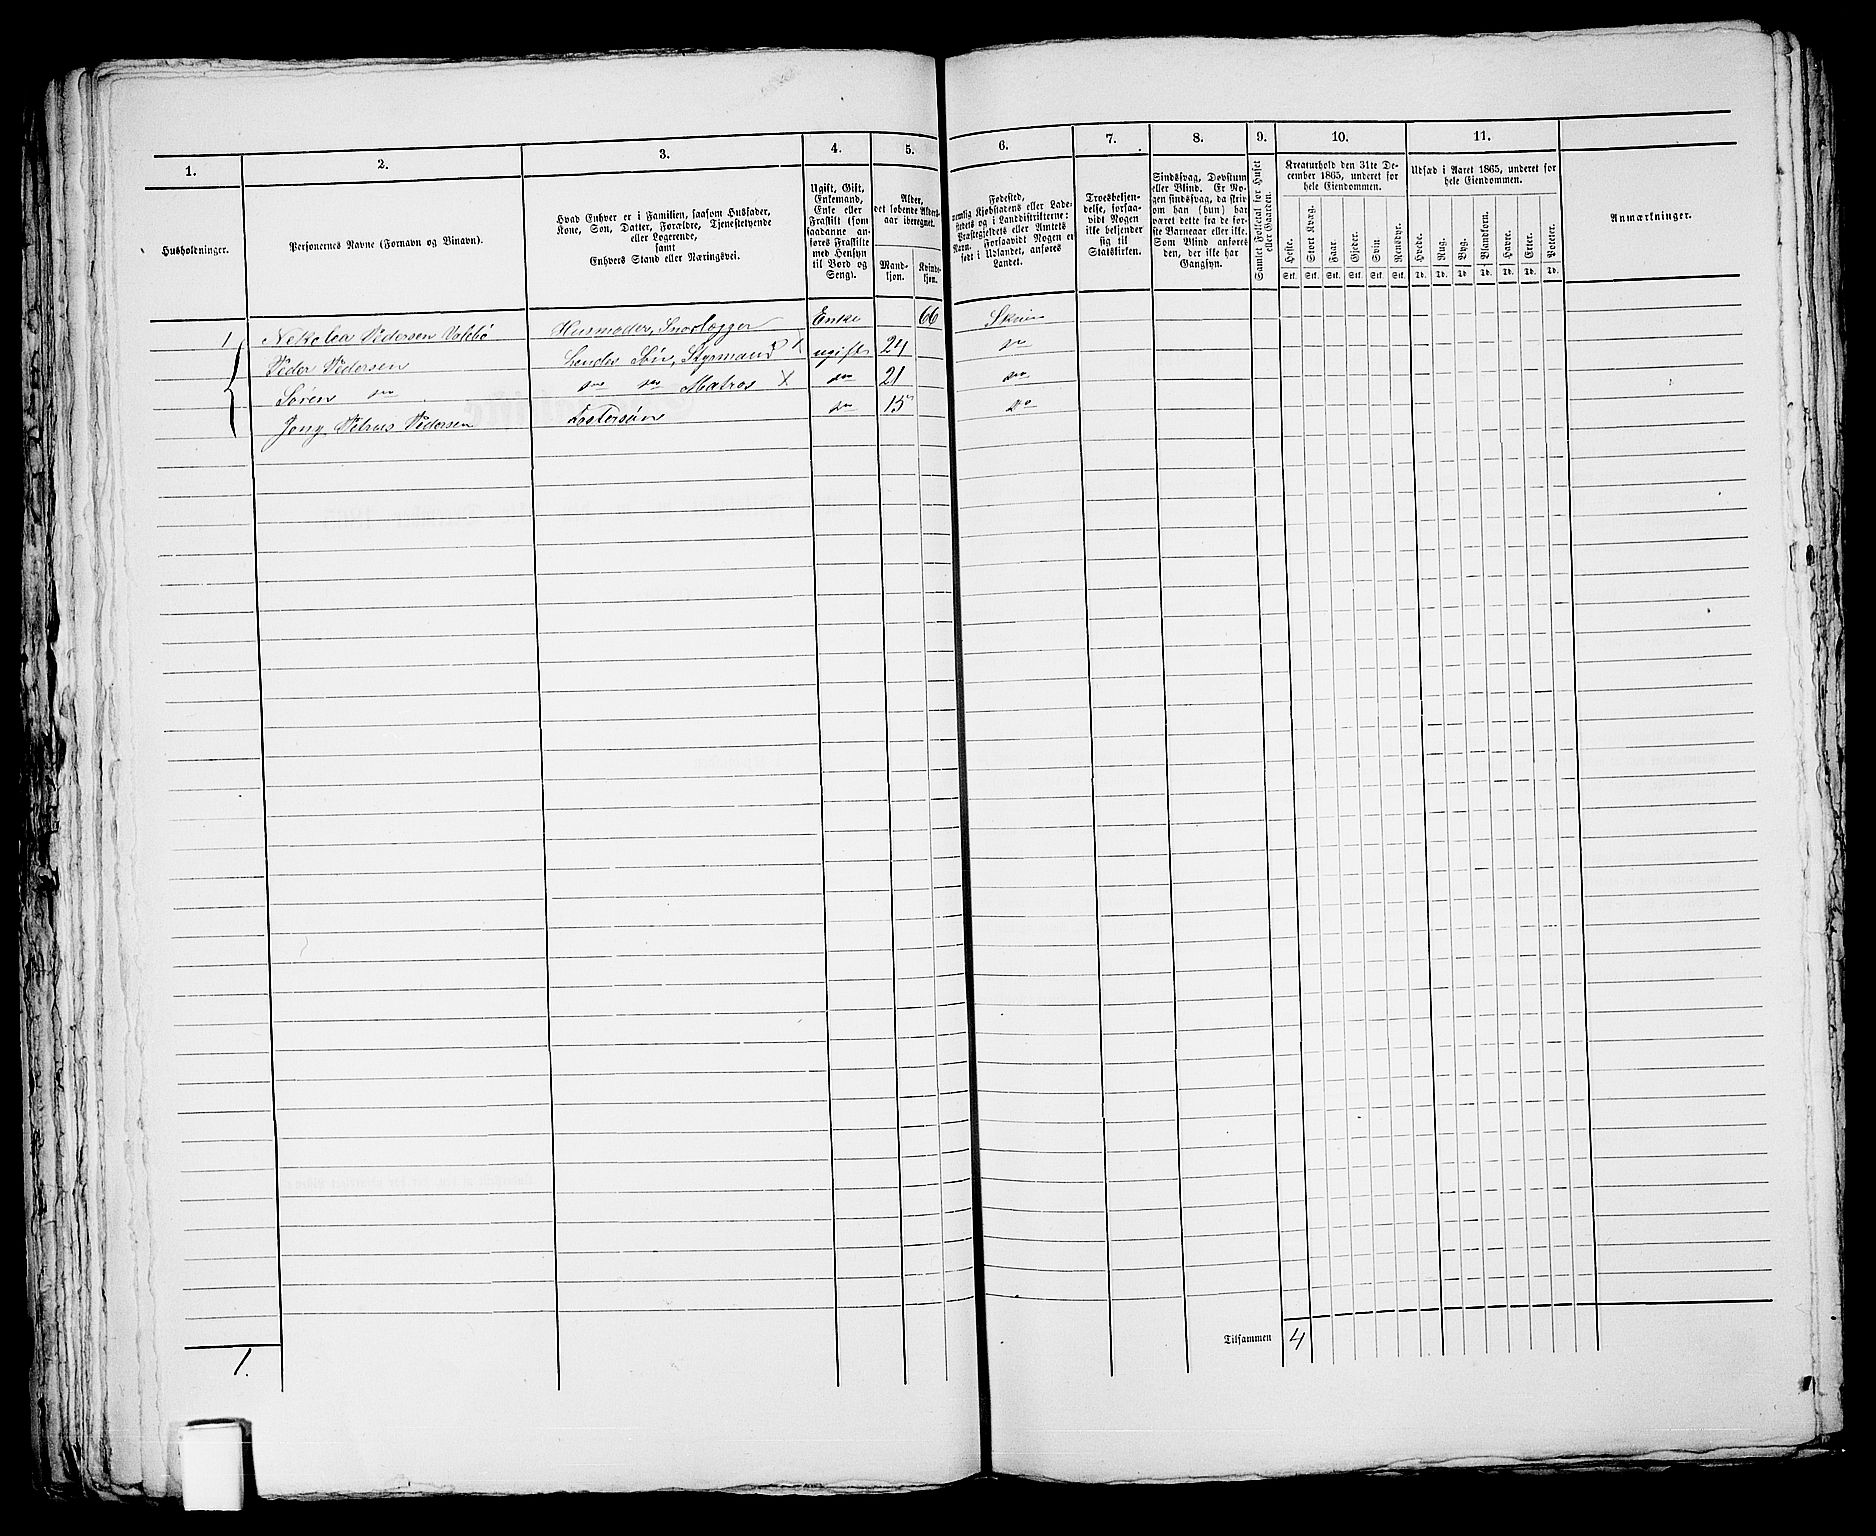 1. 2. 3. 4. 5. 6. 7. 8. 9. 10. 11.
Husholdninger.
Personernes Navne (Fornavn og Binavn).
Hvad Enhver er i Familien, saasom Husfader,
Kone, Søn, Datter, Forældre, Tjenestetyende
eller Logerende,
samt
Enhvers Stand eller Næringsvei.
Ugift, Gift,
Enkemand,
Enke eller
Fraskilt (som
saadanne an-
føres Fraskilte
med Hensyn
til Bord og
Seng).
Alder,
det løbende Alders-
aar iberegnet.
Mand-
kjøn.
Kvinde-
kjøn.
Fødested,
nemlig Kjøbstadens eller Lade-
stedets og i Landdistrikterne:
Præstegjeldets eller Amtets
Navn. Forsaavidt Nogen er
født i Udlandet, anføres
Landet.
Troesbekjen-
delse, forsaa-
vidt Nogen
ikke bekjender
sig til
Statskirken.
Sindssvag, Døvstum
eller Blind. Er No-
gen sindssvag, da skriv
om han (hun) har
været dette fra de før-
ste Barneaar eller ikke.
Som Blind anføres
den, der ikke har
Gangsyn.
Samlet Folketal for Huset
eller Gaarden.
Kreaturhold den 31te De-
cember 1865, underet for
hele Eiendommen.
Heste. Stort Kvæg. Faar. Gjeder. Svin. Rensdyr.
Stk. Stk. Stk. Stk. Stk. Stk.
Udsæd i Aaret 1865, underet for
hele Eiendommen.
Hvede. Rug. Byg. Blandkorn. Havre. Erter. Poteter.
Td. Td. Td. Td. Td. Td. Td.
Anmærkninger.
1 Pedersen Husmoder, Enke 66 Skien
Peder Pedersen Søn, Styrmand X ugift 24 do
Søren do do do Matros X do 21 do
Petrus Pedersen Fostersøn do 15 do
Tilsammen 4
1.